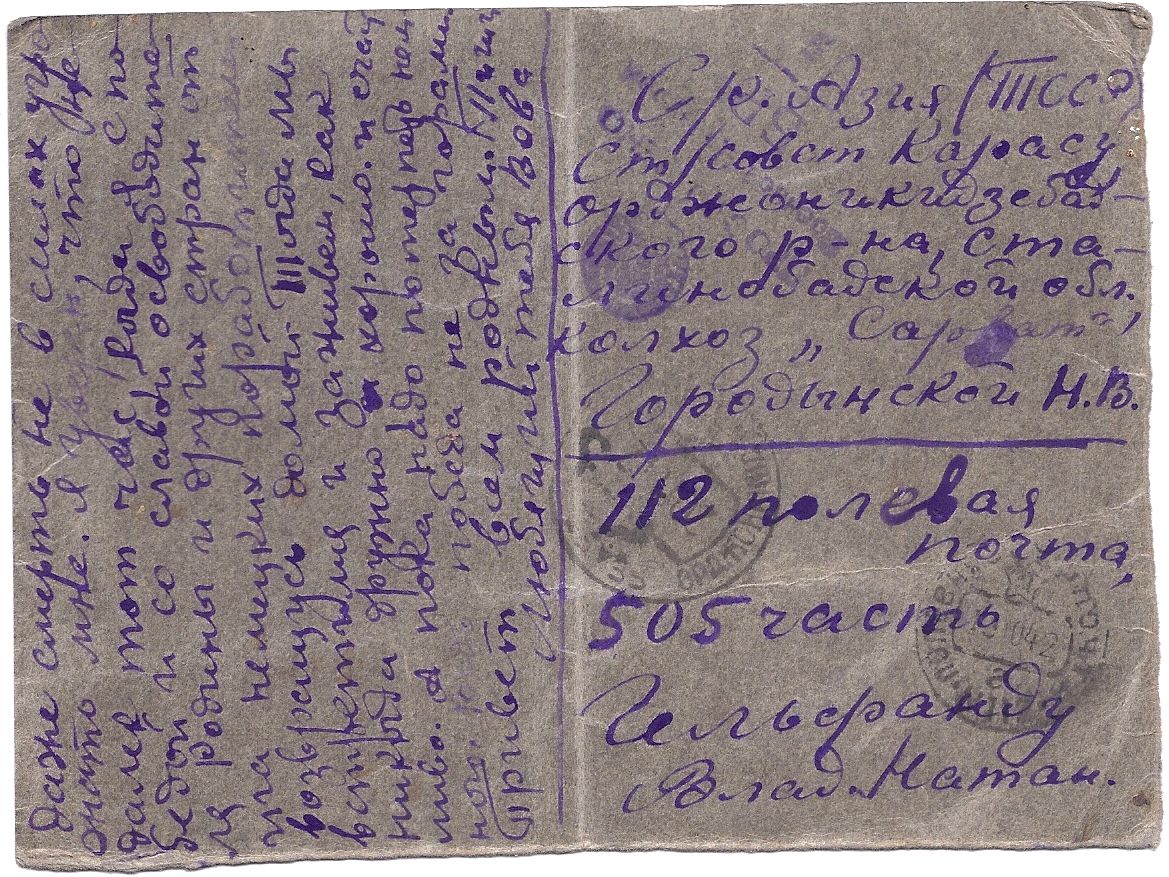 даже смерть не в силах угро
знать мне. Я уверен, что не
далек тот час, когда с по
бедой и со славой освободите
ля родины и других стран от
ига немецких поработителей
возвращусь домой. Тогда мы
встретимся и заживем, как
никогда дружно и хорошо. и счаст
ливо. а пока надо потерпеть нем
ного. победа не за горами.
Привет всем родным. Пиши
Любящий тебя Вова
Ср. Азия (ТССР)
Ст/совет Карасу
орджоникидзебад-
ского р-на, ста-
линобадской обл.
колхоз „Сарват",
Городынской Н.В.
112 полевая
почта,
505 часть
Гельфанду
Влад. Натан.